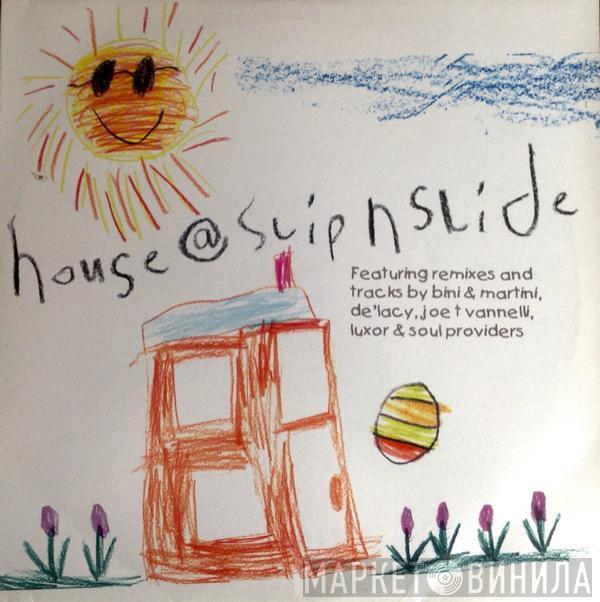 house @ slip n slide
Featuring remixes and
tracks by bini & martini,
de'lacy, joe t vannelli,
luxor & soul providers
МАРКЕТ ВИНИЛА